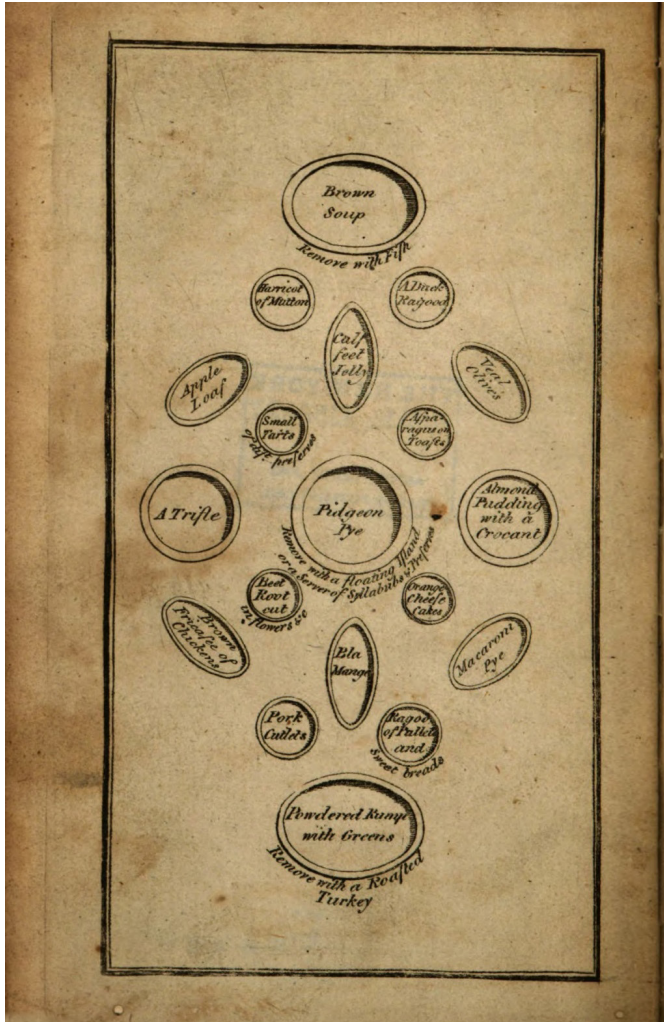 Brown
Soup
Remove with Fiſh
Harricot
of Mutton
A Duck
Ragood
Calf
feet
Jelly
Apple
Loaf
Veal
Olives
Small
Tarts
of diff.t preſerves
Aſpa-
ragus on
Toaſts
A Trifle
Pidgeon
Pye
Remove with a floating Iſland
or a Server of Syllabubs & Preſerves
Almond
Pudding
with a
Crocant
Beet
Root
cut
in flowers &c
Orange
Cheeſe
Cakes
Brown
Fricaſse of
Chickens
Bla
Mange
Macaroni
Pye
Pork
Cutlets
Ragoo
of Pallets
and
Sweet breads
Powdered Rump
with Greens
Remove with a Roaſted
Turkey